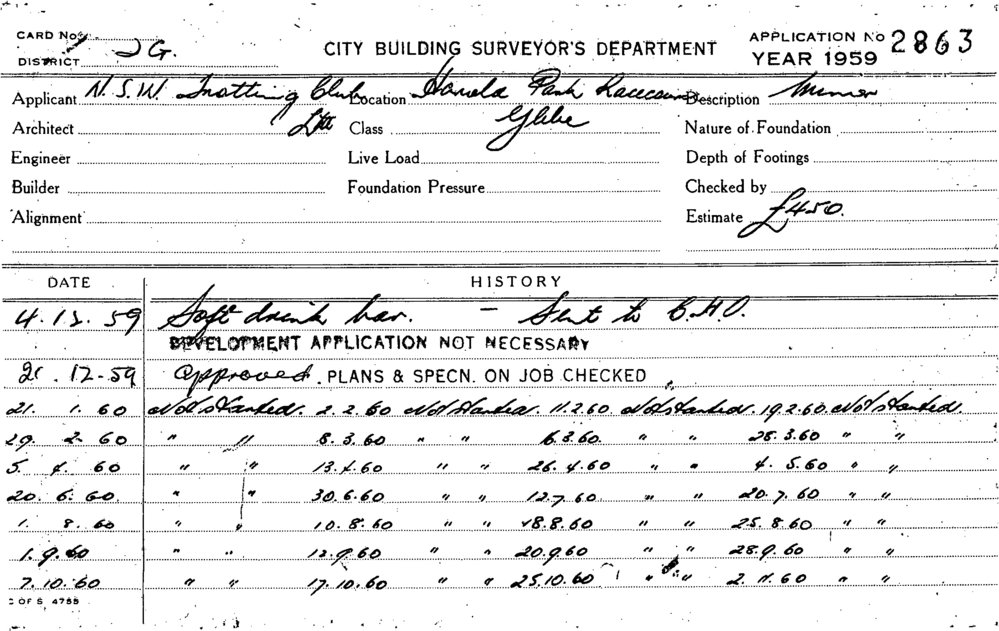 CARD No. APPLICATION No 2863
DISTRICT 2G. CITY BUILDING SURVEYOR'S DEPARTMENT YEAR 1959
Applicant N.S.W. Trotting Club Location Harold Park Racecourse Description Minnor
Architect Ltd Class Glebe Nature of Foundation
Engineer Live Load Depth of Footings
Builder Foundation Pressure Checked by
Alignment Estimate £450.
DATE HISTORY
4.12.59 Soft drink bar. - Sent to C.H.O.
DEVELOPMENT APPLICATION NOT NECESSARY
21.12-59 Approved. PLANS & SPECN. ON JOB CHECKED
21. 1. 60 Not started. 2.2.60 Not started. 11.2.60. Not started. 19.2.60. Not started.
29. 2. 60 " " 8.3.60 " " 16.3.60. " " 28.3.60 " "
5. 4. 60 " " 13.4.60 " " 26.4.60 " " 4.5.60 " "
20. 6. 60 " " 30.6.60 " " 12.7.60. " " 20.7.60 " "
1. 8. 60 " " 10.8.60 " " 18.8.60 " " 25.8.60 " "
1.9.60 " " 12.9.60 " " 20.9.60 " " 28.9.60 " "
7.10.60 " " 17.10.60 " " 25.10.60 " " 2.11.60 " "
C OF S 4755